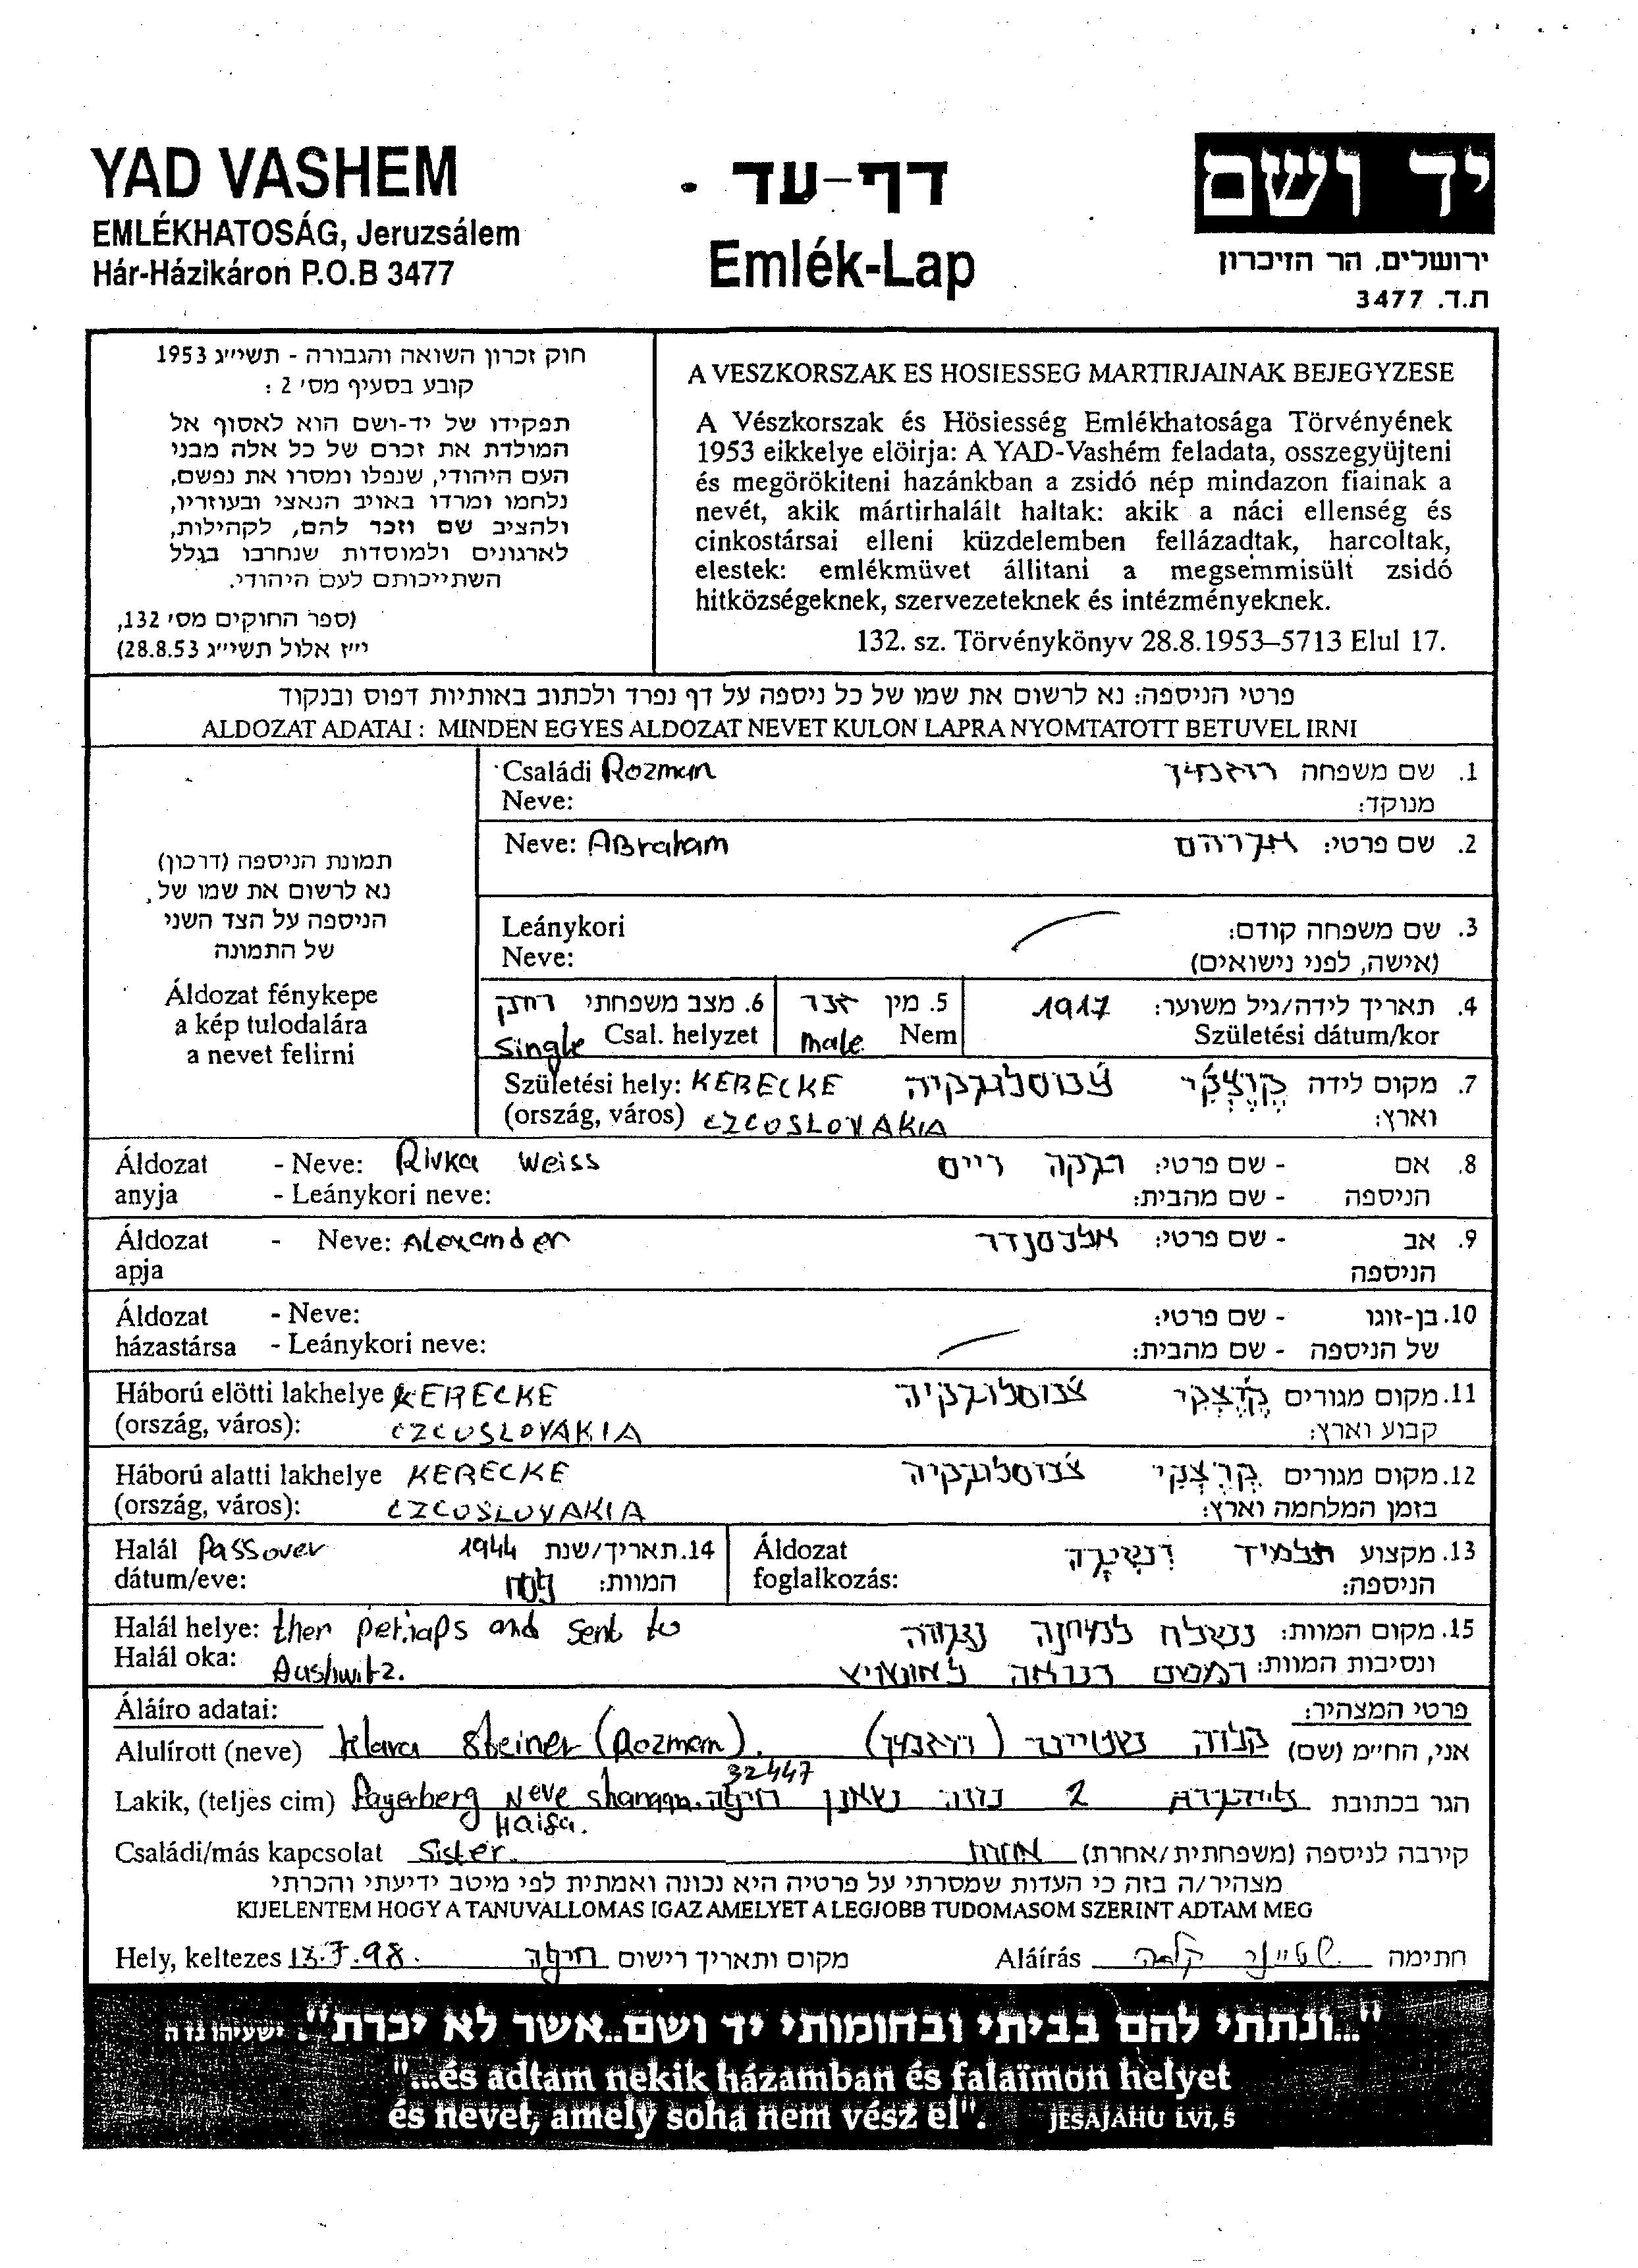 YAD VASHEM
EMLÉKHATOSÁG, Jeruzsálem
Hár-Házikáron P.O.B 3477
דף-עד
Emlék-Lap
יד ושם
ירושלים, הר הזיכרון
ת.ד. 3477
חוק זכרון השואה והגבורה - תשי״ג 1953
קובע בסעיף מס׳ 2 :
תפקידו של יד-ושם הוא לאסוף אל
המולדת את זכרם של כל אלה מבני
העם היהודי, שנפלו ומסרו את נפשם,
נלחמו ומרדו באויב הנאצי ובעוזריו,
ולהציב שם וזכר להם, לקהילות,
לארגונים ולמוסדות שנחרבו בגלל
השתייכותם לעם היהודי.
(ספר החוקים מס׳ 132,
י״ז אלול תשי״ג 28.8.53)
A VESZKORSZAK ES HOSIESSEG MARTIRJAINAK BEJEGYZESE
A Vészkorszak és Hösiesség Emlékhatosága Törvényének
1953 eikkelye elöirja: A YAD-Vashém feladata, osszegyüjteni
és megörökiteni hazánkban a zsidó nép mindazon fiainak a
nevét, akik mártirhalált haltak: akik a náci ellenség és
cinkostársai elleni küzdelemben fellázadtak, harcoltak,
elestek: emlékmüvet állitani a megsemmisült zsidó
hitközségeknek, szervezeteknek és intézményeknek.
132. sz. Törvénykönyv 28.8.1953–5713 Elul 17.
פרטי הניספה: נא לרשום את שמו של כל ניספה על דף נפרד ולכתוב באותיות דפוס ובנקוד
ALDOZAT ADATAI : MINDEN EGYES ALDOZAT NEVET KULON LAPRA NYOMTATOTT BETUVEL IRNI
תמונת הניספה (דרכון)
נא לרשום את שמו של
הניספה על הצד השני
של התמונה
Áldozat fénykepe
a kép tulodalára
a nevet felirni
Családi Rozman רוזמן 1. שם משפחה
Neve: מנוקד:
Neve: ABraham אברהם 2. שם פרטי:
Leánykori 3. שם משפחה קודם:
Neve: (אישה, לפני נישואים)
4. תאריך לידה/גיל משוער: 1917 5. מין זכר 6. מצב משפחתי רווק
Születési dátum/kor Nem male Csal. helyzet Single
Születési hely: KERECKE צ׳כוסלובקיה קרצקי 7. מקום לידה
(ország, város) CZCOSLOVAKIA וארץ:
Áldozat - Neve: Rivka Weiss רבקה וייס - שם פרטי: 8. אם
anyja - Leánykori neve: - שם מהבית: הניספה
Áldozat - Neve: Alexander אלכסנדר - שם פרטי: 9. אב
apja הניספה
Áldozat - Neve: - שם פרטי: 10. בן-זוגו
házastársa - Leánykori neve: - שם מהבית: של הניספה
Háború elötti lakhelye KERECKE צ׳כוסלובקיה קרצקי 11. מקום מגורים
(ország, város): CZCUSLOVAKIA קבוע וארץ:
Háború alatti lakhelye KERECKE צ׳כוסלובקיה קרצקי 12. מקום מגורים
(ország, város): CZCOSLOVAKIA בזמן המלחמה וארץ:
Halál Passover 1944 14. תאריך/שנת Áldozat תלמיד ישיבה 13. מקצוע
dátum/eve: פסח המוות: foglalkozás: הניספה:
Halál helye: ther perhaps and sent to נשלח למחנה עבודה 15. מקום המוות:
Halál oka: Aushwitz. כנראה לאושוויץ ונסיבות המוות:
Áláíro adatai: פרטי המצהיר:
Alulírott (neve) Klara Steiner (Rozman). קלרה שטיינר (רוזמן) אני, הח״מ (שם)
32447
Lakik, (teljes cim) Payerberg Neve shanaan. חיפה נווה שאנן 2 הגר בכתובת
Haifa.
Családi/más kapcsolat Sister. אחות קירבה לניספה (משפחתית/אחרת)
מצהיר/ה בזה כי העדות שמסרתי על פרטיה היא נכונה ואמתית לפי מיטב ידיעתי והכרתי
KIJELENTEM HOGY A TANUVALLOMAS IGAZ AMELYET A LEGJOBB TUDOMASOM SZERINT ADTAM MEG
Hely, keltezes 13.7.98. חיפה מקום ותאריך רישום Aláírás שטיינר קלרה חתימה
"...ונתתי להם בביתי ובחומותי יד ושם..אשר לא יכרת". ישעיהו נו ה
"...és adtam nekik házamban és falaïmon helyet
és nevet, amely soha nem vész el". JESAJÁHU LVI, 5